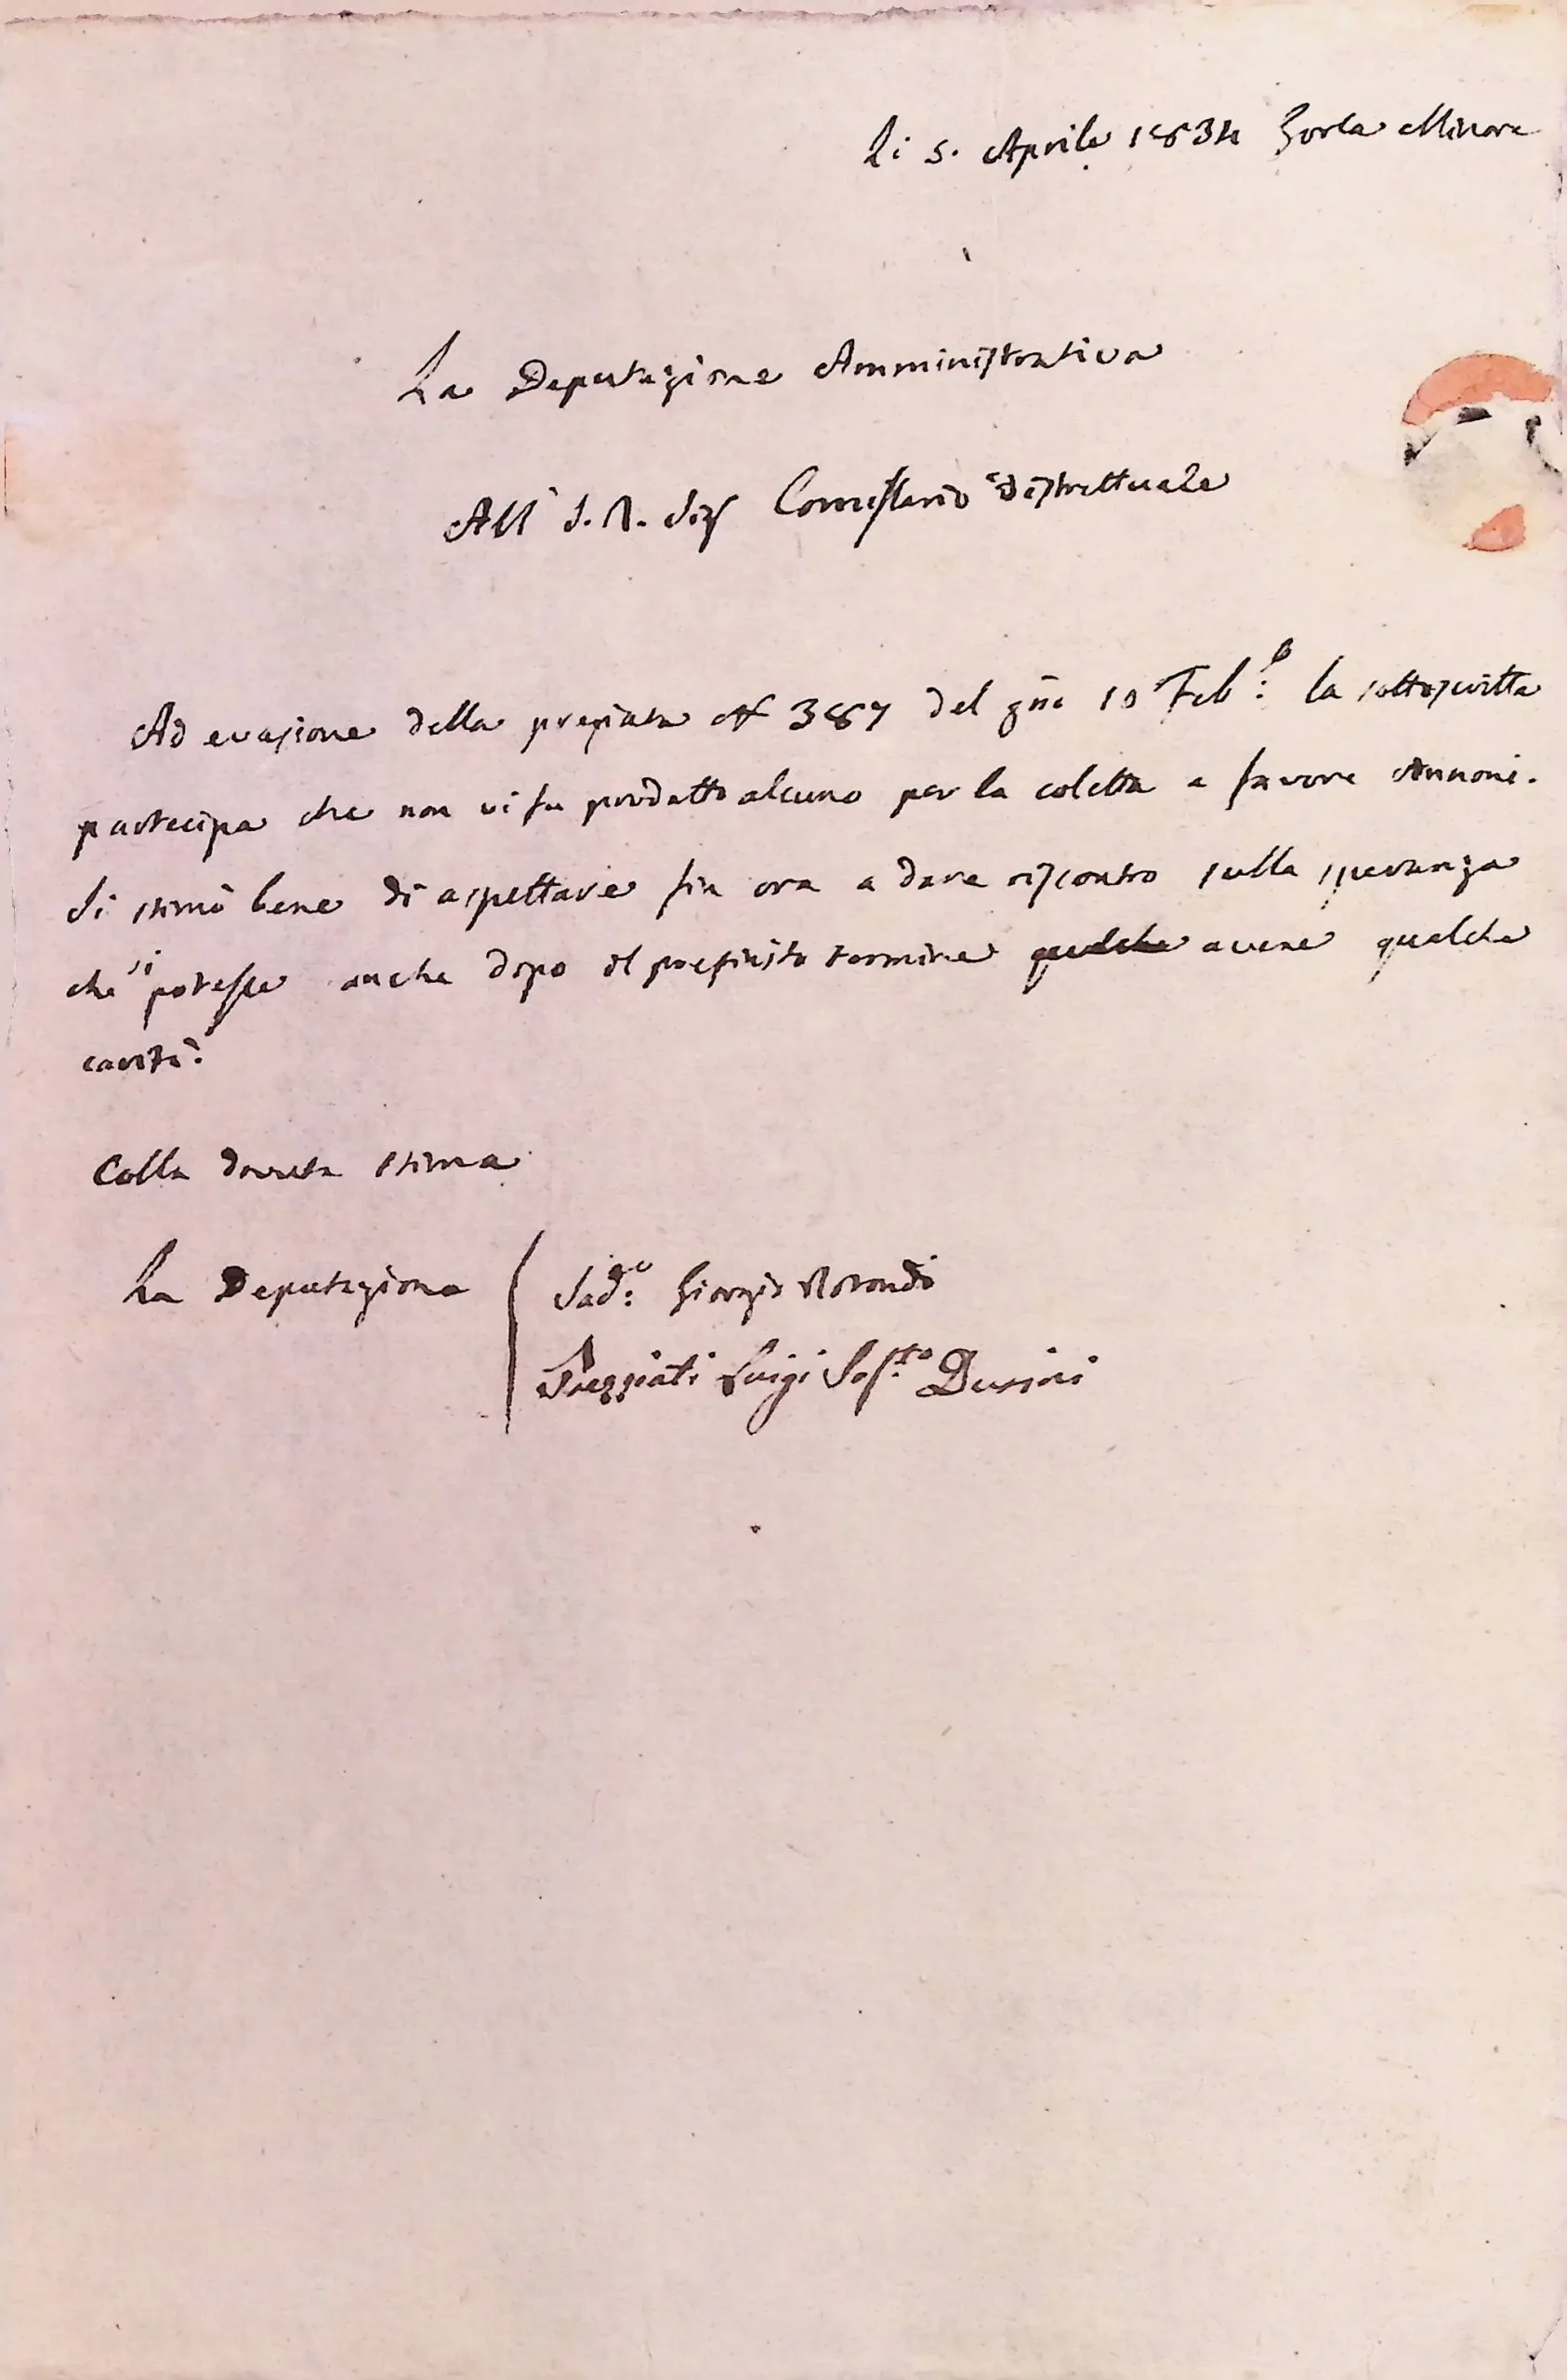 li 5. Aprile 1834 Gorla Minore
La Deputazione Amministrativa
All' I. R. Sig.r Commissario Distrettuale
Ad evasione della pregiata N 387 del 10 Feb: la sottoscritta
partecipa che non vi fu prodotto alcuno per la coletta a favore Annoni.
Si stimò bene di aspettare fin ora a dare riscontro sulla speranza
che si potesse anche dopo il prefinito termine qualche avere qualche
carità.
Colla dovuta stima
La Deputazione
Giorgio Rotondi
Luigi Sost.to Durini